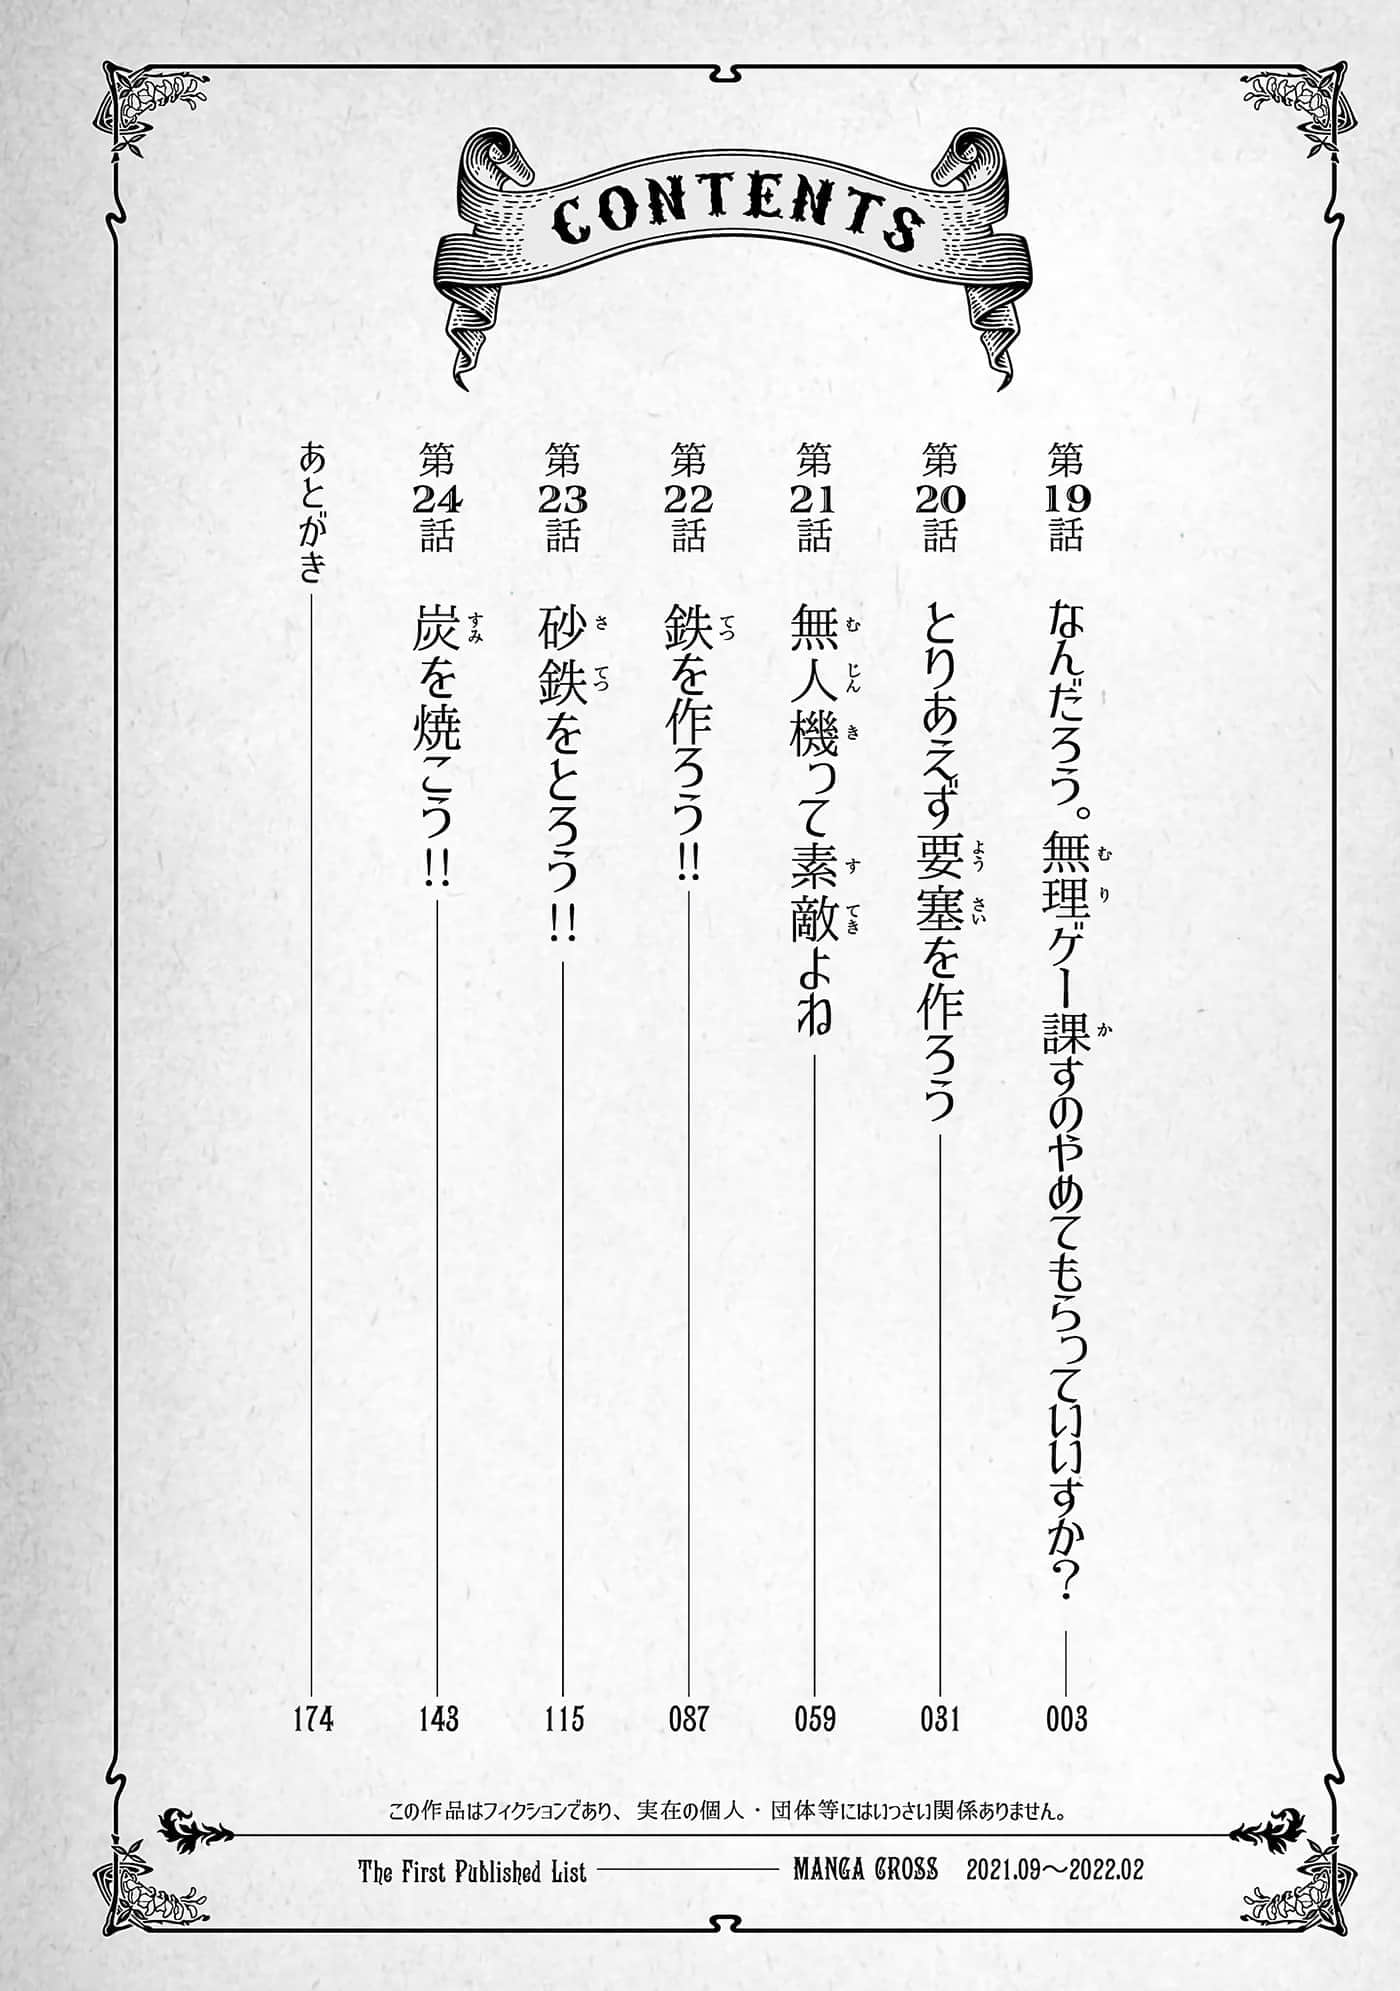 CONTENTS
第19話 なんだろう。無理ゲー課すのやめてもらっていいすか? 003
第20話 とりあえず要塞を作ろう 031
第21話 無人機って素敵よね 059
第22話 鉄を作ろう!! 087
第23話 砂鉄をとろう!! 115
第24話 炭を焼こう!! 143
あとがき 174
この作品はフィクションであり、実在の個人・団体等にはいっさい関係ありません。
The First Published List MANGA CROSS 2021.09〜2022.02